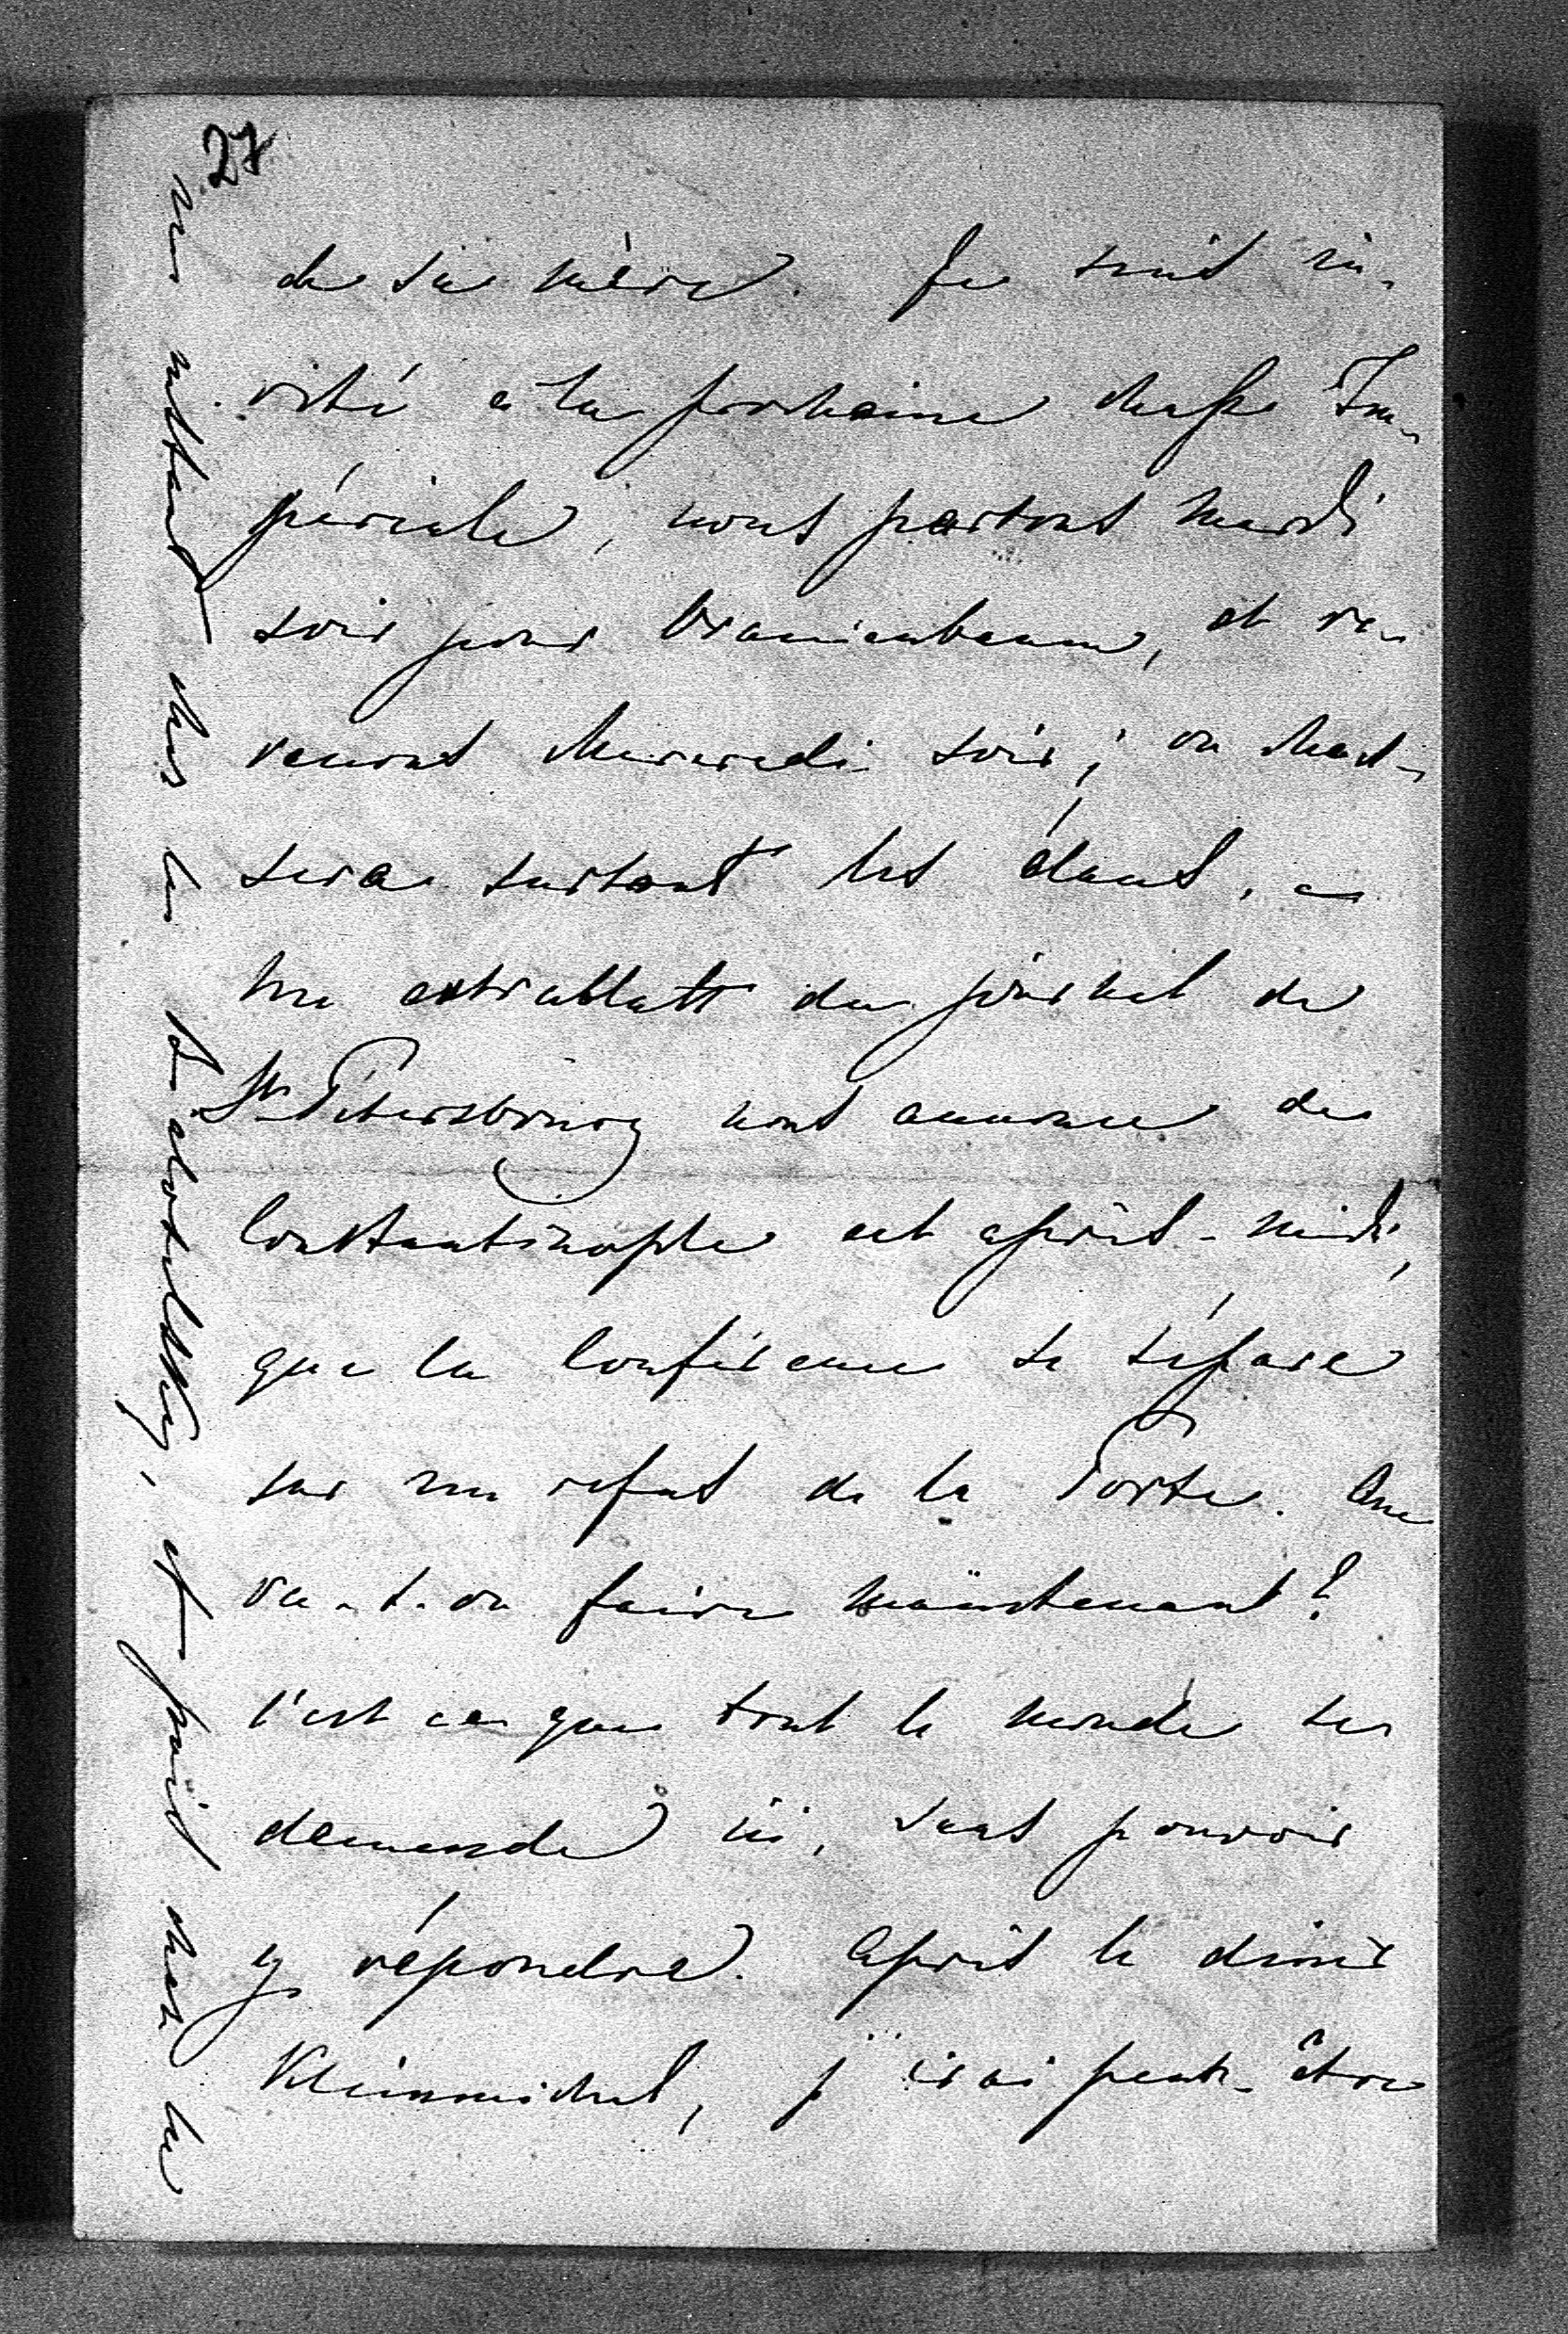 27
de sa mère. Je suis in-
vité à la prochaine chasse Im-
périale, nous partons mardi
soir pour Oranienbaum, et re-
venons Mercredi soir; on chas-
sera surtout les élans. —
Un extrablatt du journal de
St. Pétersbourg nous annonce de
Constantinople cet après-midi,
que la Conférence se sépare
sur un refus de la Porte. Que
va-t-on faire maintenant?
C'est ce que tout le monde se
demande ici, sans pouvoir
y répondre. Après le dîner
Kleinmichel, j'irai peut-être
un instant chez les et puis chez les